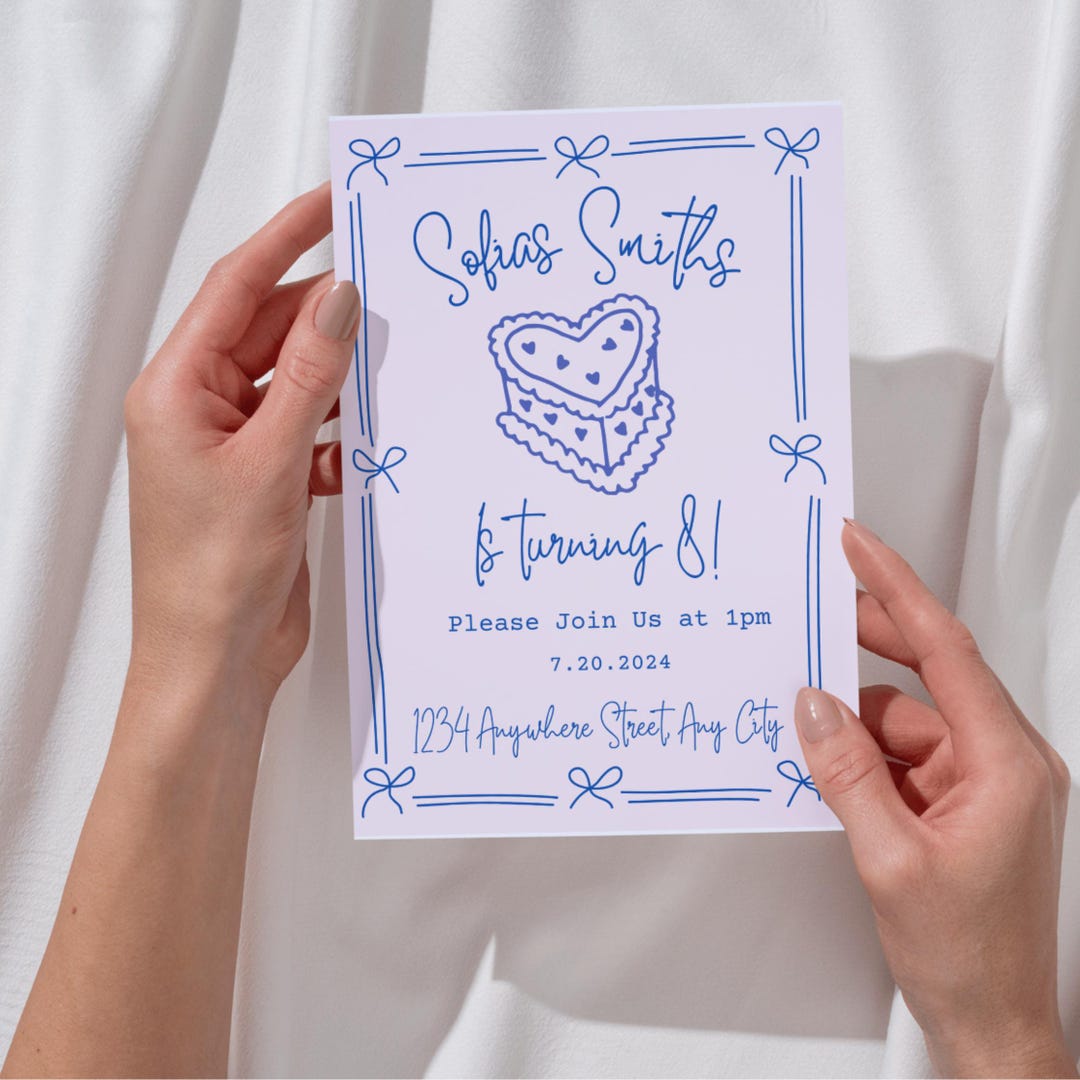 Sofias Smiths
Is turning 8!
Please Join Us at 1pm
7.20.2024
1234 Anywhere Street, Any City